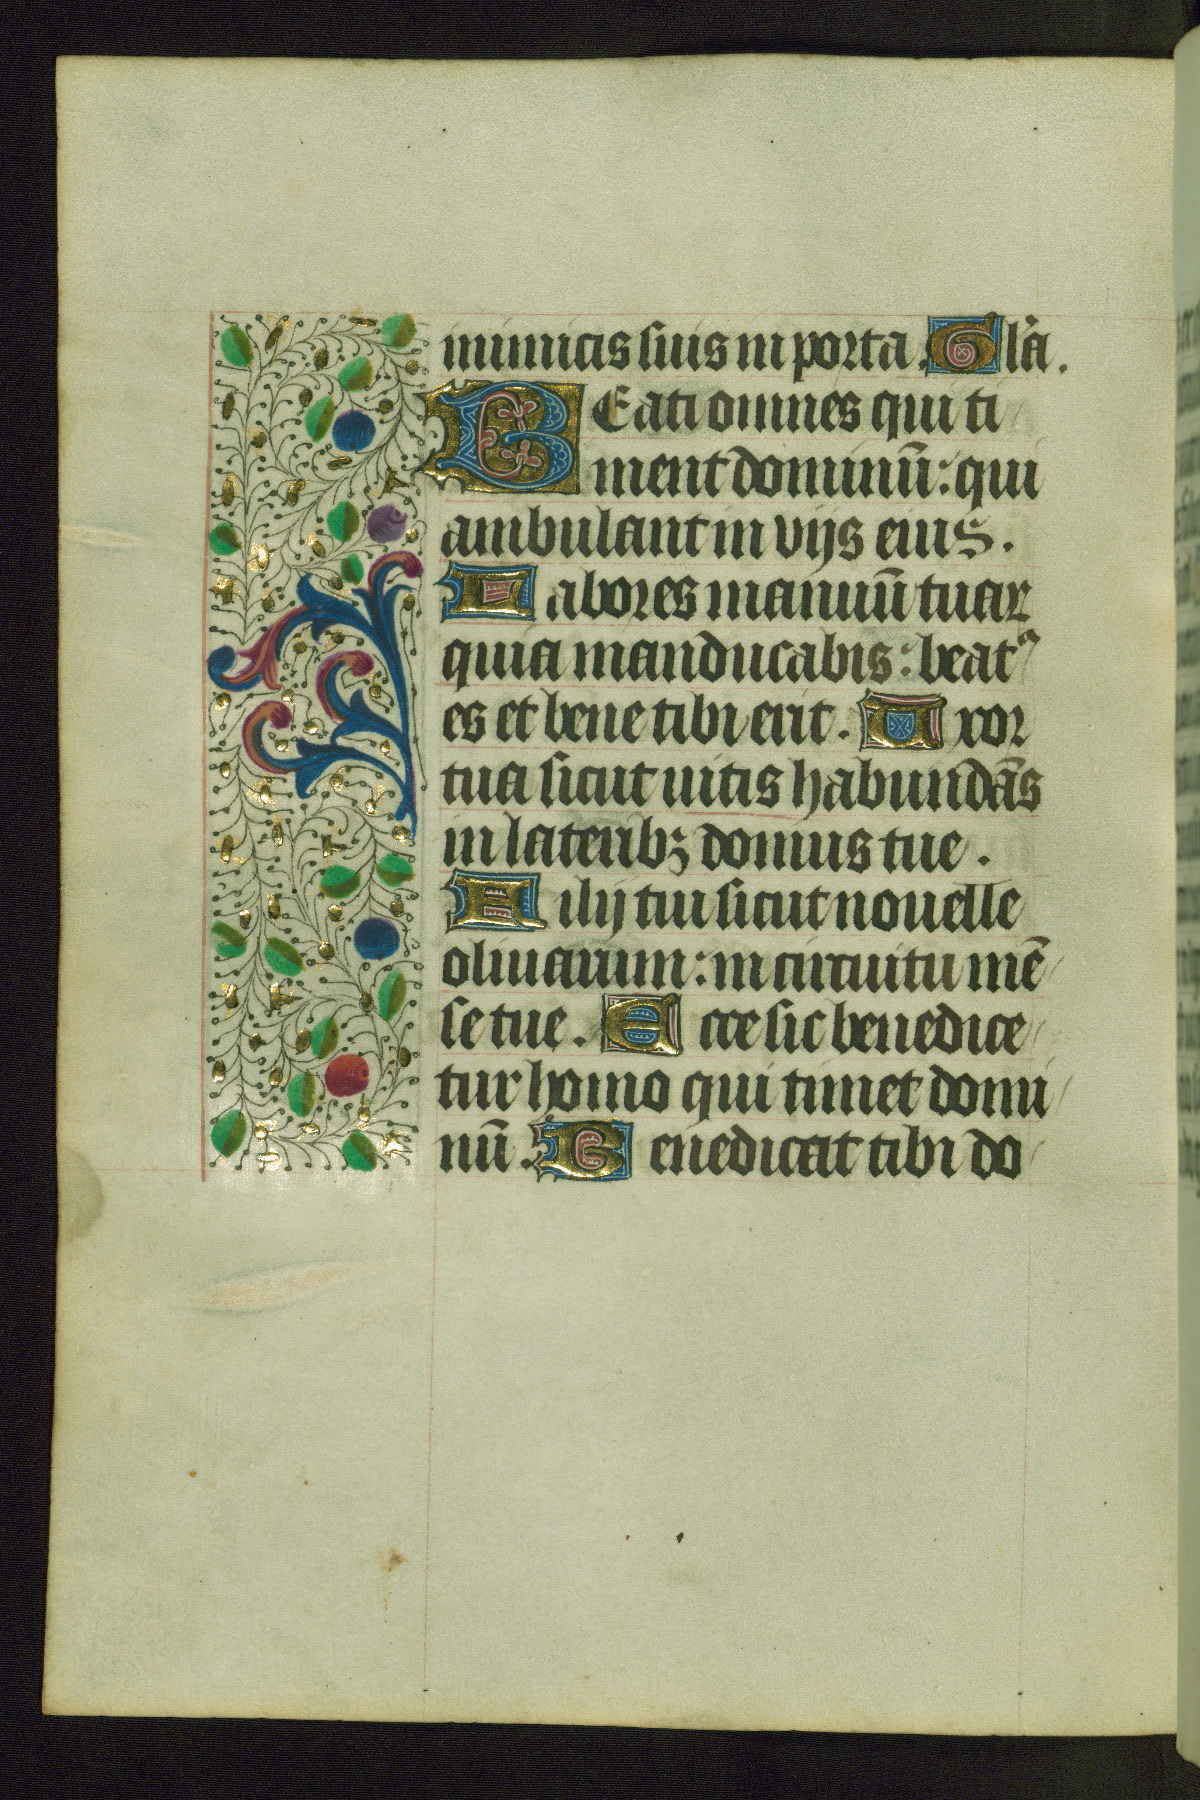 inimicis suis in porta. Gl̃a.
BEati omnes qui ti
ment dominũ: qui
ambulant in vijs eius.
Labores manuũ tuaꝝ
quia manducabis: beatꝰ
es et bene tibi erit. Uxor
tua sicut uitis habundãs
in lateribꝫ domus tue.
Filij tui sicut nouelle
oliuarum: in circuitu mẽ
se tue. Ecce sic benedice
tur homo qui timet domi
nũ. Benedicat tibi do